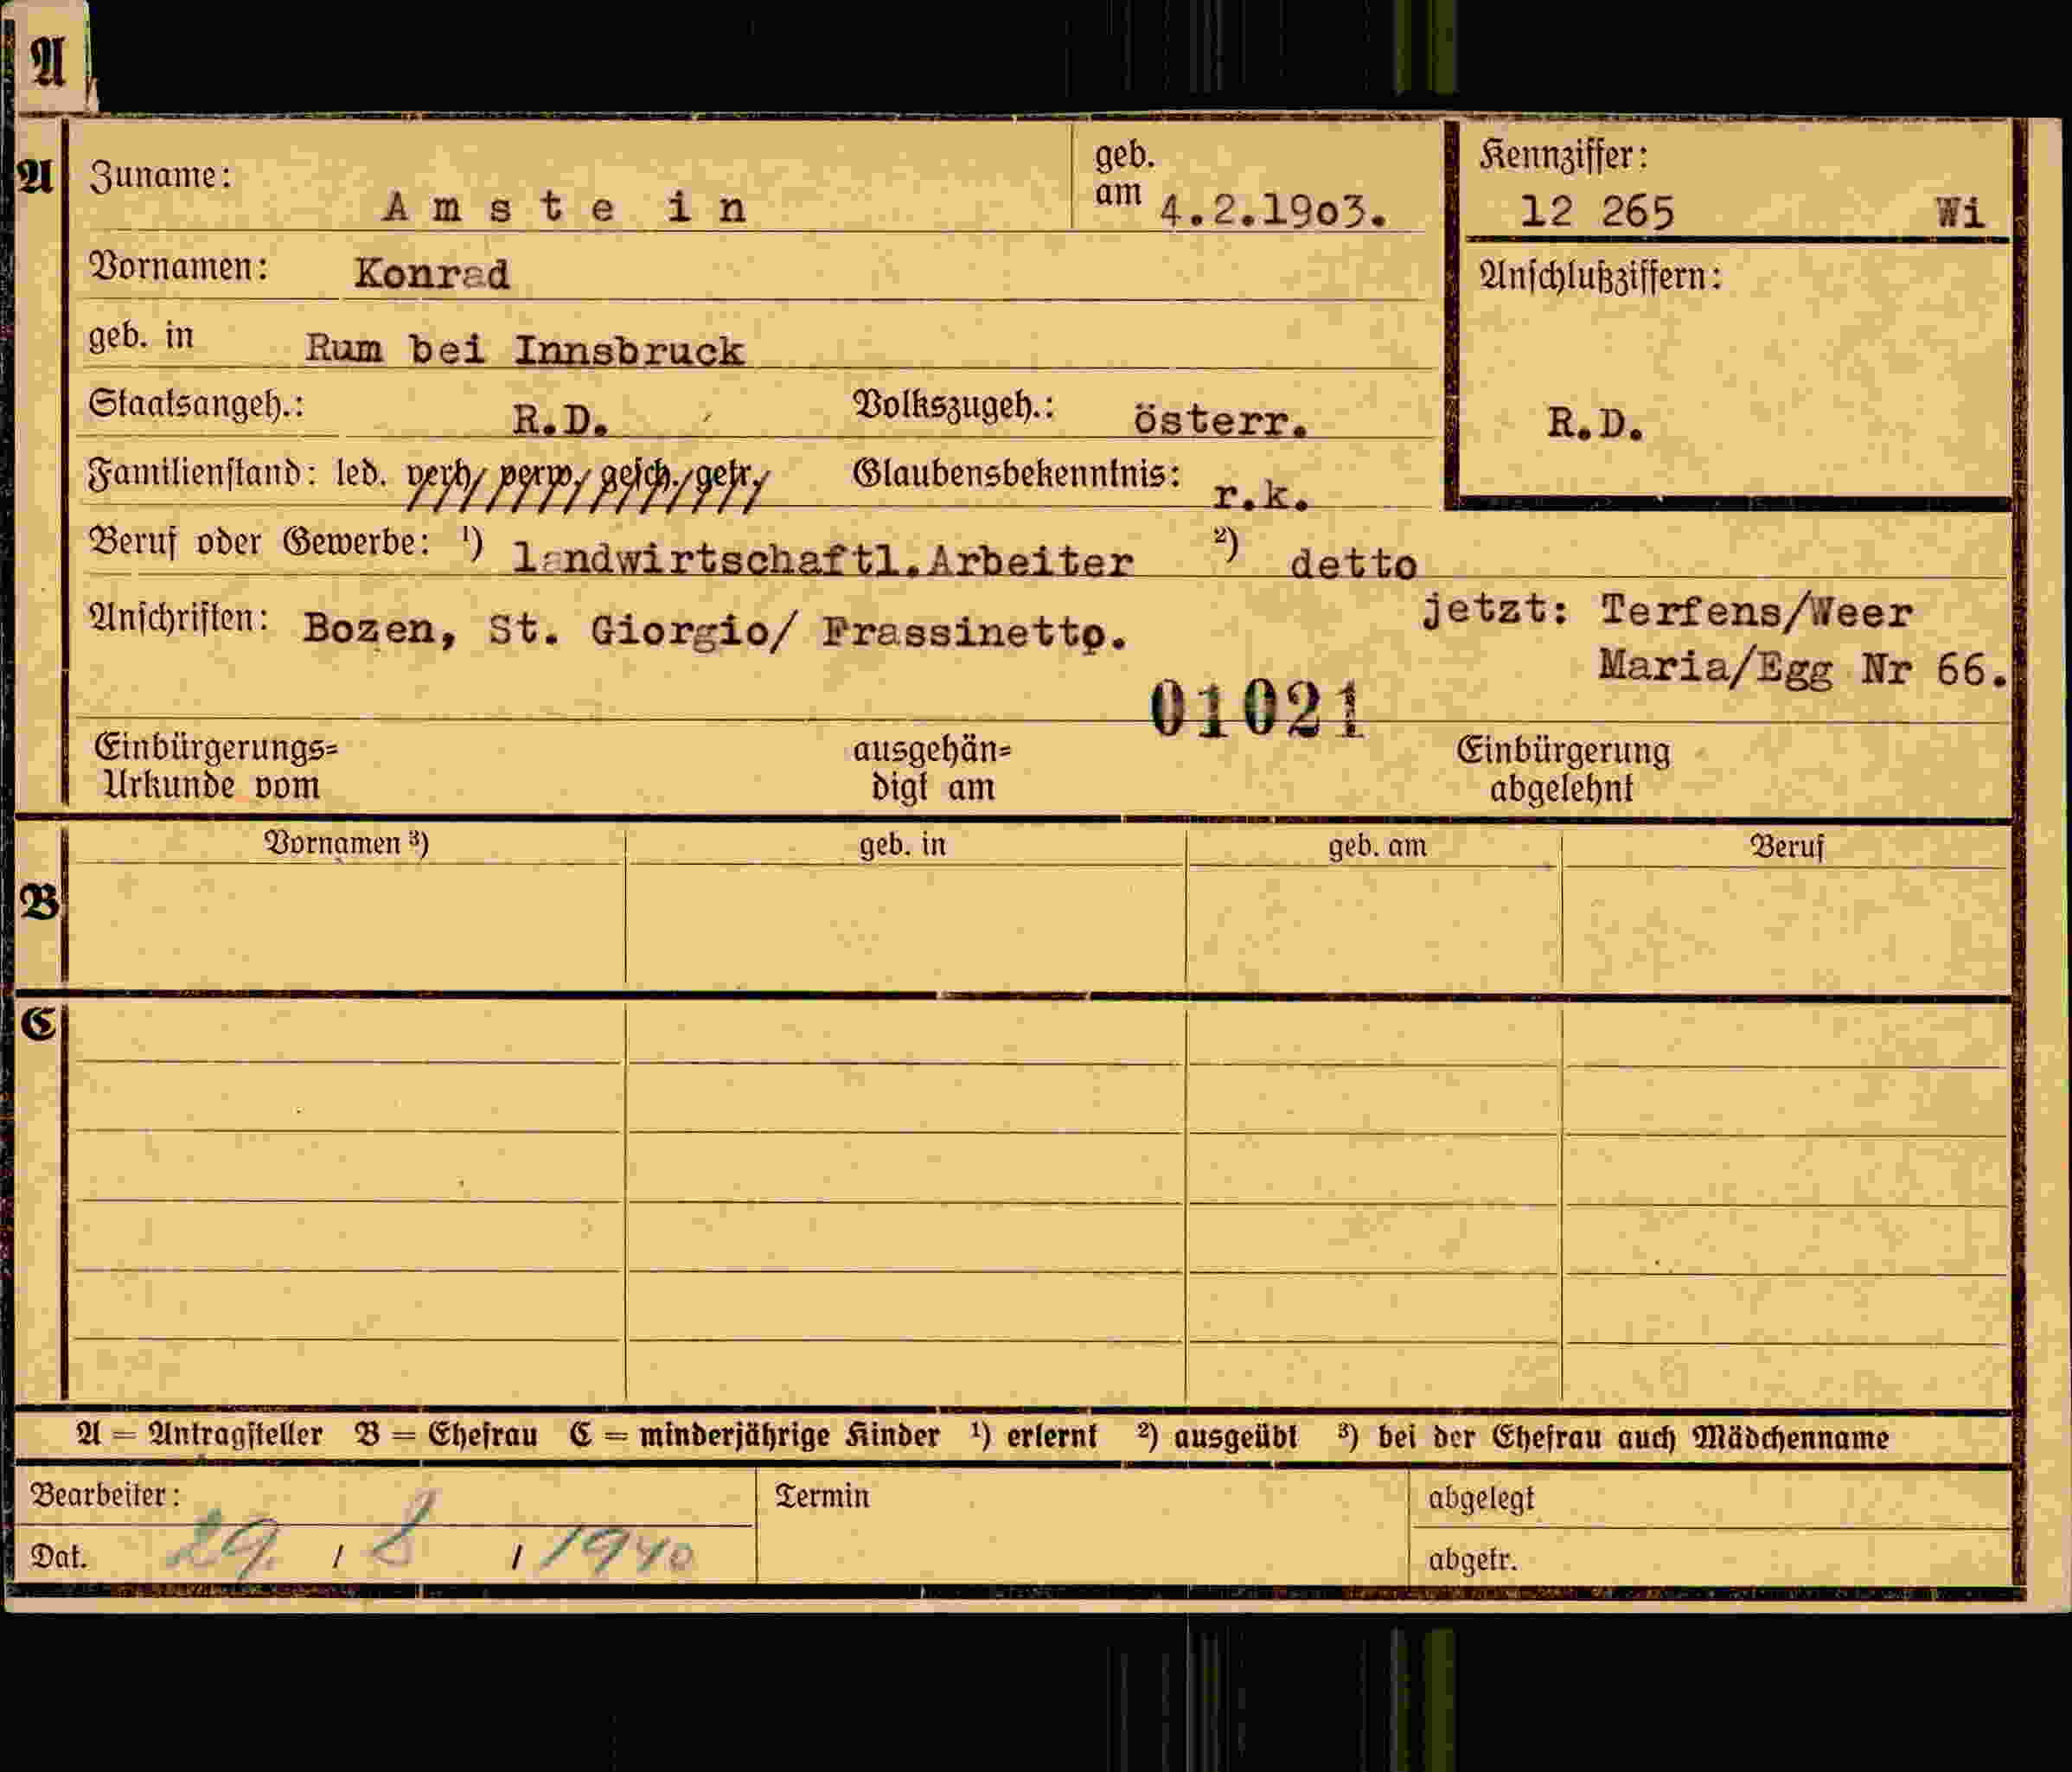 A
A
Zuname: Amstein geb. am 4.2.1903. Kennziffer: 12 265 Wi
Vornamen: Konrad Anschlußziffern:
geb. in Rum bei Innsbruck
Staatsangeh.: R.D. Volkszugeh.: österr. R.D.
Familienstand: led. verh. verw. gesch. getr. Glaubensbekenntnis: r.k.
Beruf oder Gewerbe: ¹) landwirtschaftl.Arbeiter ²) detto
Anschriften: Bozen, St. Giorgio/ Frassinetto. jetzt: Terfens/Weer
Maria/Egg Nr 66.
01021
Einbürgerungs= ausgehän= Einbürgerung
Urkunde vom digt am abgelehnt
Vornamen ³) geb. in geb. am Beruf
B
C
A = Antragsteller B = Ehefrau C = minderjährige Kinder ¹) erlernt ²) ausgeübt ³) bei der Ehefrau auch Mädchenname
Bearbeiter: Termin abgelegt
Dat. 29. / 8 / 1940 abgetr.